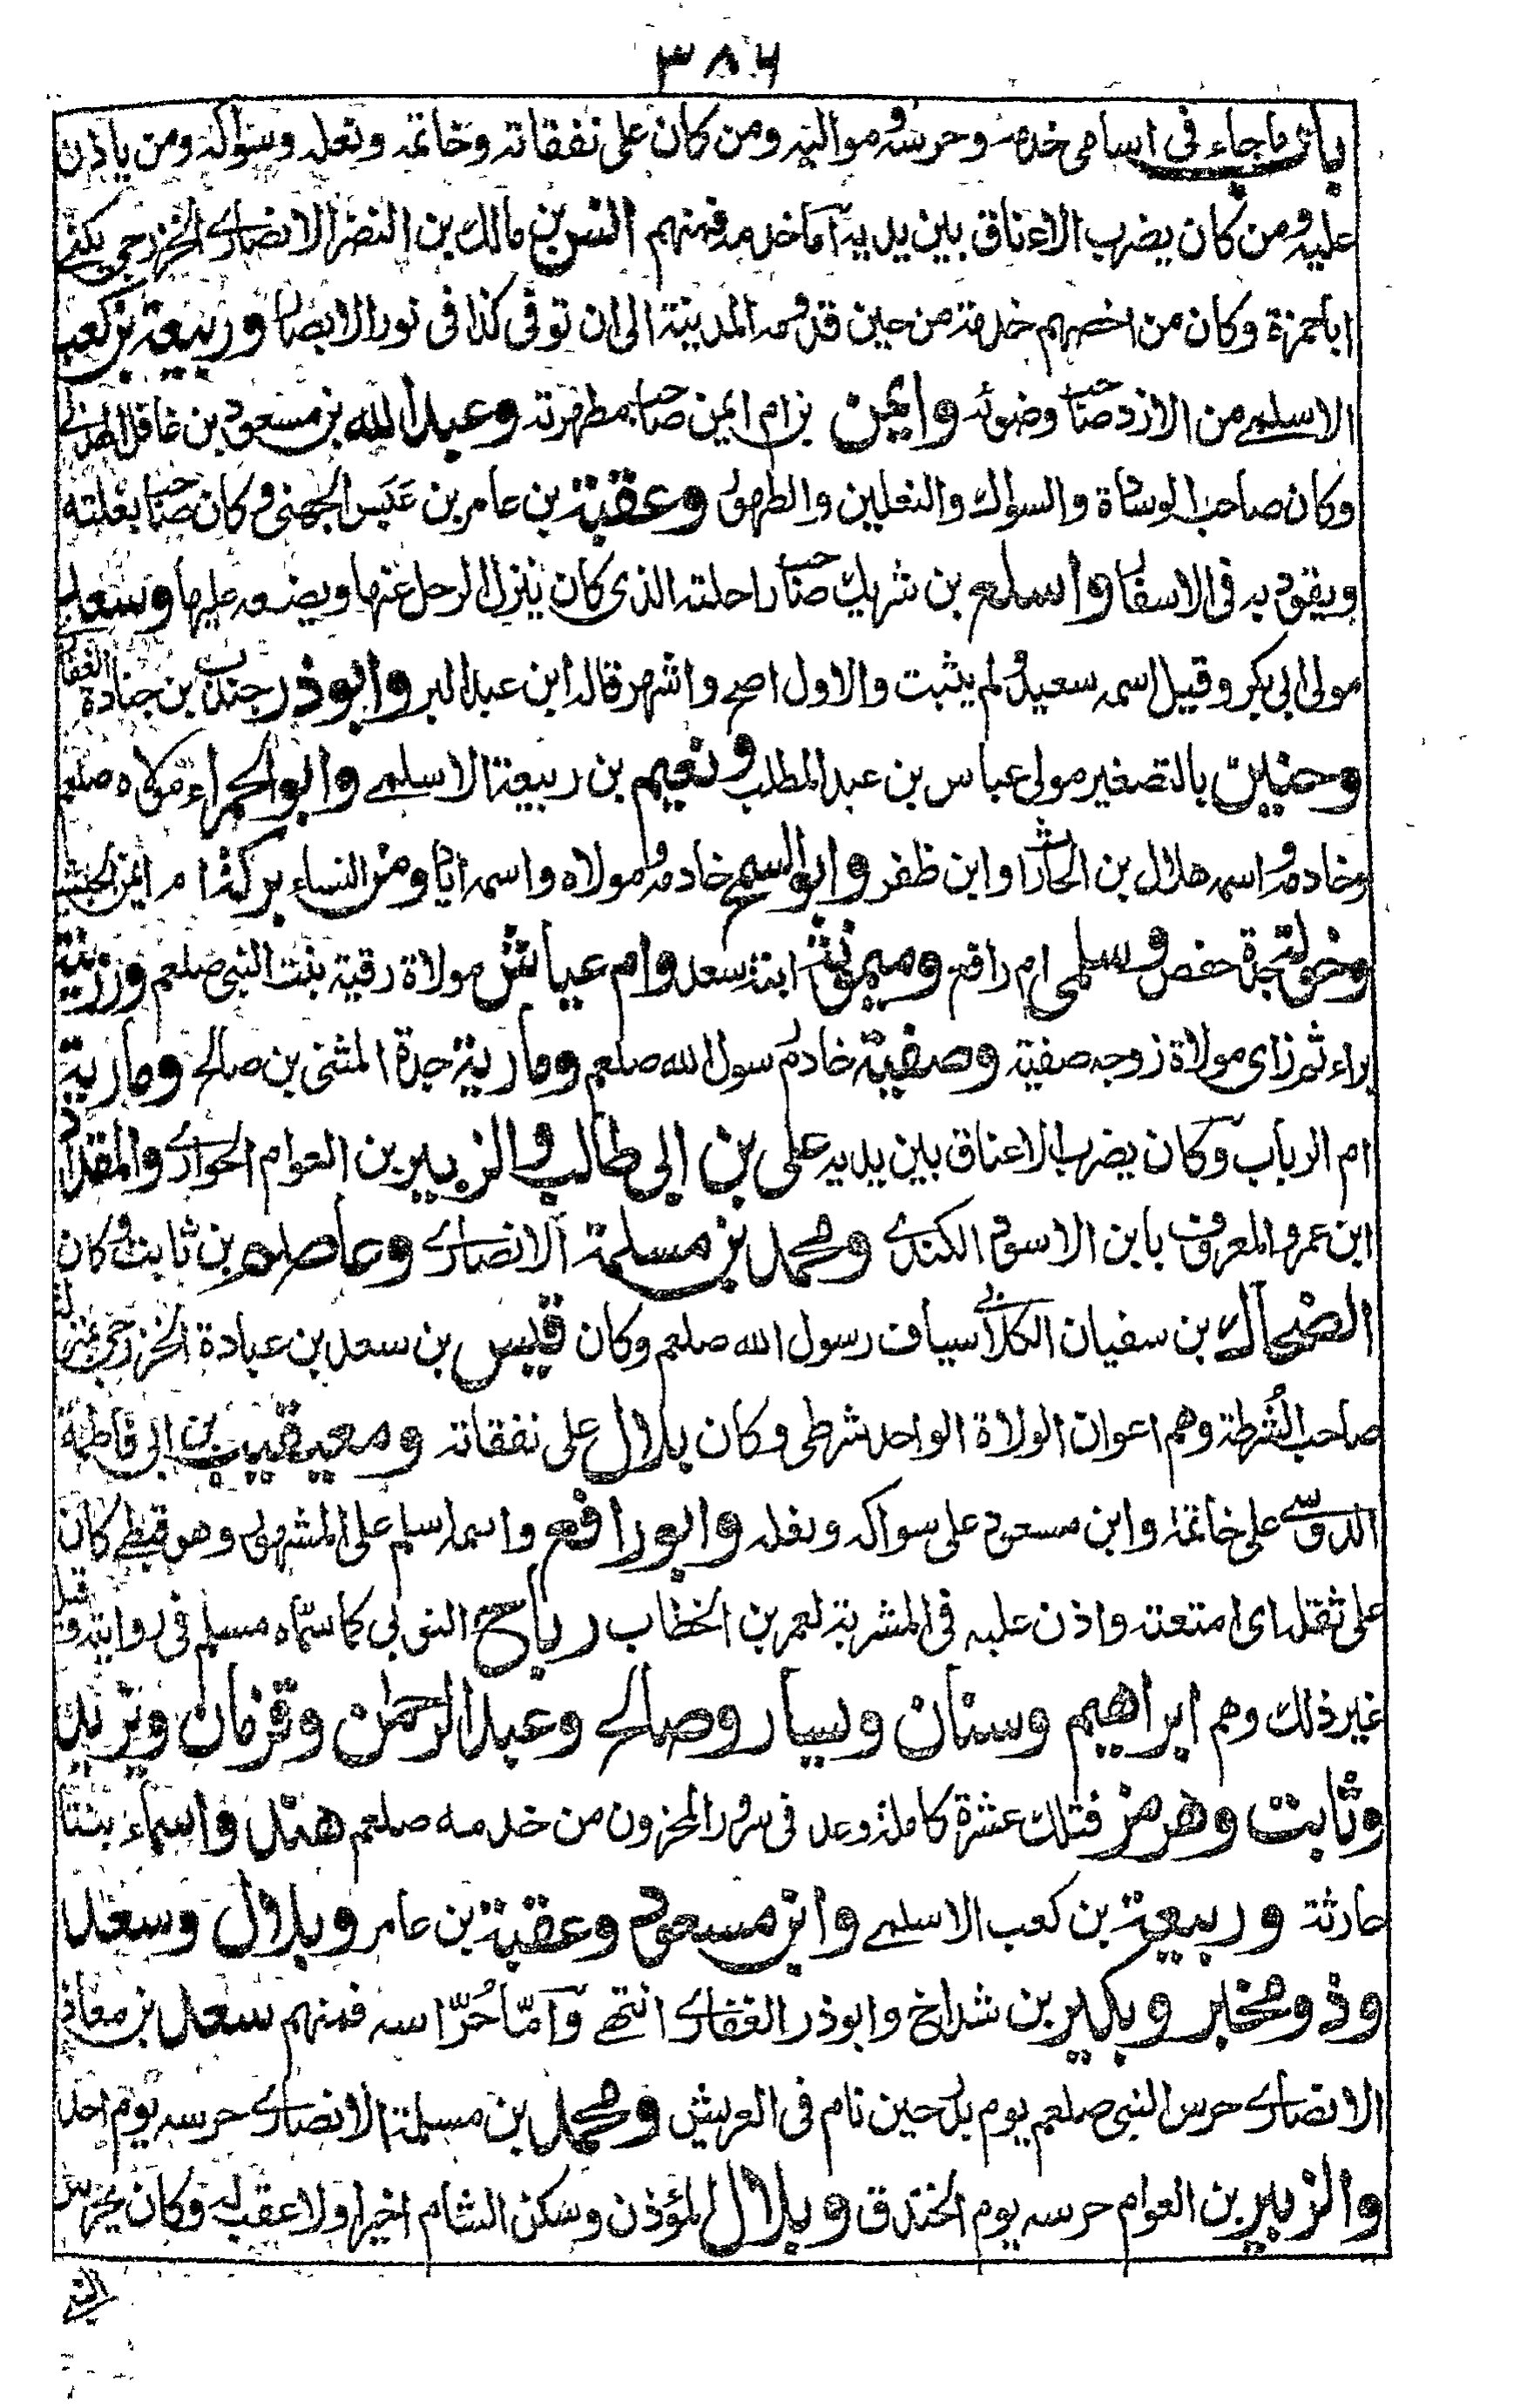 ٣٨٦
باب ما جاء فى اسامى خدمه وحرسه ومواليه ومن كان على نفقاته وخاتمه ونعله وسواكه ومن ياذن
عليه ومن كان يضرب الاعناق بين يديه اما خدمه فمنهم انس بن مالك بن النضر الانصارى الخزرجى يكنى
اباحمزة وكان من اخصهم خدمة من حين قدومه المدينة الى ان توفى كذا فى نور الابصار وربيعة بن كعب
الاسلمے من الازد صاحب وضوئه وايمن بن ام ايمن صاحب مطهرته وعبد الله بن مسعود بن غافل الهذلى
وكان صاحب الوسادة والسواك والنعلين والطهور وعقبة بن عامر بن عَبَس الجهنى وكان صاحب بغلته
ويقود به فى الاسفار واسلع بن شريك صاحب راحلته الذى كان ينزل الرحل عنها ويضعه عليها وسعد
مولى ابى بكر وقيل اسمه سعيد ولم يثبت والاول اصح واشهر قاله ابن عبد البر وابوذر جندب بن جنادة الغفارى
وحنين بالتصغير مولى عباس بن عبد المطلب ونعيم بن ربيعة الاسلمے وابو الحمراء مولاه صلعم
وخادمه واسمه هلال بن الحارث او ابن ظفر وابو السمح خادمه ومولاه واسمه اياد ومن النساء بركة ام ايمن الحبشية
وخولة جدة حفص وسلمى ام رافع وميمونة ابنة سعد وام عياش مولاة رقية بنت النبى صلعم ورزينة
براء ثم زاى مولاة زوجه صفية وصفية خادم رسول الله صلعم ومارية جدة المثنى بن صالح ومارية
ام الرباب وكان يضرب الاعناق بين يديه على بن ابى طالب والزبير بن العوام الحوارى والمقداد
ابن عمرو المعروف بابن الاسود الكندے ومحمد بن مسلمة الانصارى وعاصم بن ثابت وكان
الضحاك بن سفيان الكلابى سياف رسول الله صلعم وكان قيس بن سعد بن عبادة الخزرجى بمنزلة
صاحب الشُرطة وهم اعوان الولاة الواحد شرطى وكان بلال على نفقاته ومعيقيب بن ابى فاطمة
الدوسے على خاتمه وابن مسعود على سواكه ونعله وابو رافع واسمه اسلم على المشهور وهو قبطے كان
على ثقله اى امتعته واذن عليه فى المشربة لعمر بن الخطاب رباح النوبى كما سمّاه مسلم فى روايته وقيل
غير ذلك وهم ابراهيم وسنان ويسار وصالح وعبد الرحمن وقزمان ويزيد
وثابت وهرمز فتلك عشرة كاملة وعد فى سرور المحزون من خدمه صلعم هند واسماء بنتا
حارثة وربيعة بن كعب الاسلمے وابن مسعود وعقبة بن عامر وبلال وسعد
وذو مخبر وبكير بن شداخ وابوذر الغفارى انتهے وامّا حُرّاسه فمنهم سعد بن معاذ
الانصارى حرس النبى صلعم يوم بدر حين نام فى العريش ومحمد بن مسلمة الانصارى حرسه يوم احد
والزبير بن العوام حرسه يوم الخندق وبلال المؤذن وسكن الشام اخيرا ولا عقب له وكان يحرس
النبے